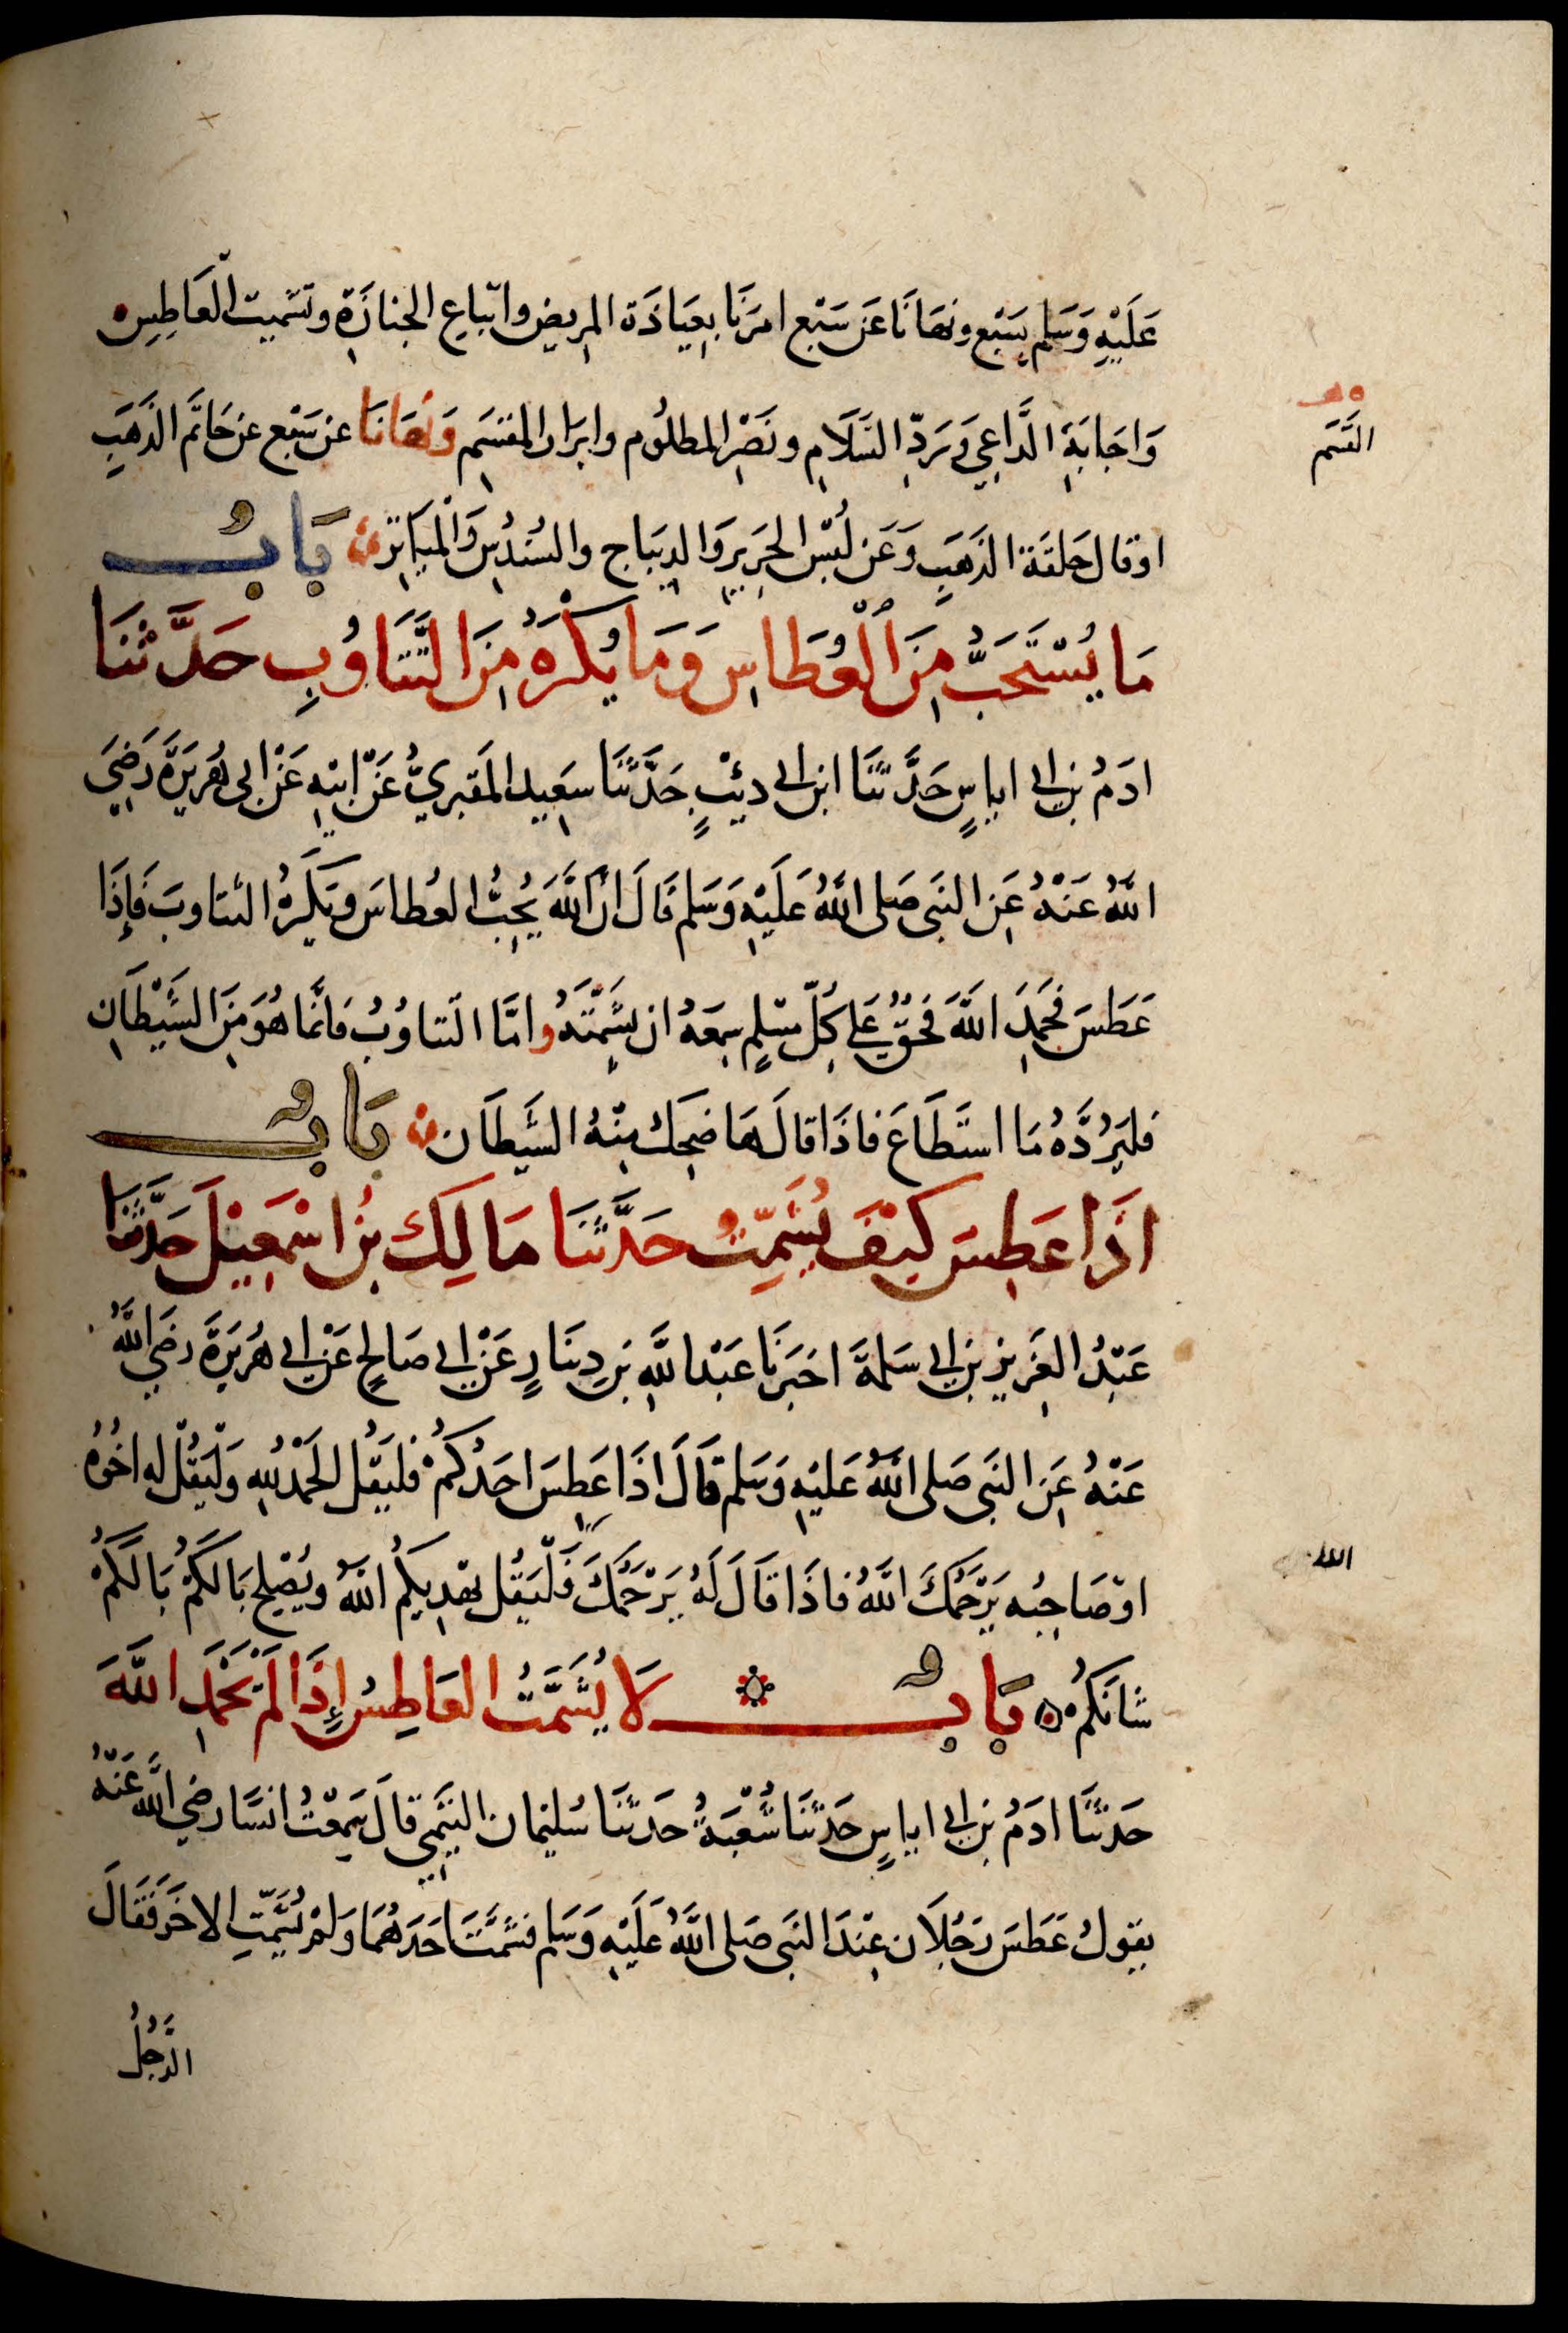 عَلَيْهِ وَسَلم بِسَبْعٍ ونَهَانَا عَن سَبْعٍ امرَنَا بِعِيَادَة المِريض واتّباعِ الجنازَةِ وتشميت الْعَاطِسِ
وَاجَابَةِ الدَّاعِي وَرَدِّ السَّلَامِ ونَصْرِ المظلُوم وابرَار المقسَم وَنَهَانَا عن سَبْع عن خَاتَم الذَهَبِ
القَسَم
اوقال حَلقَة الذَهَبِ وَعَن لُبْسِ الحَرِيرِ وَالدِيبَاج والسُندُسِ وَالْمَيَاثِر بَابُ
مَا يُسْتَحَبُّ مِنَ الْعُطَاسِ وَمَا يُكْرَهُ مِنَ التَّثَاوُبِ حَدَّثنَا
ادَمُ بن ابى اياسٍ حَدَّثنَا ابن ابى ذئبٍ حَدَّثنَا سَعِيد المَقبرِيُّ عَنْ ابيْهِ عَنْ ابى هُرَيرَةَ رَضِيَ
اللَّهُ عَنْهُ عَنِ النَبِى صَلى اللَّهُ عَلَيْهِ وَسَلم قَالَ انَّ اللَّهَ يُحِبُّ العُطاسَ وَيَكرَهُ التثاوبَ فَإِذَا
عَطَسَ فَحَمِدَ اللَّهَ فَحَقٌّ عَلى كلِّ مسْلمٍ سمعَهُ ان يشَمِّتَهُ وامَّا التثاوُبُ فانَّمَا هُوَ مِنَ الشَّيْطَانِ
فليَرُدَّهُ مَا استَطَاعَ فاذَا قالَ هَا ضحِكَ مِنْهُ الشَّيطَان بَابُ
اذَا عَطِسَ كَيْفَ يُشَمِّتُ حَدَّثنَا مَالِك بنُ اسْمَعِيْلَ حَدَّثنَا
عَبْدُ العَزِيز بن ابى سَلمَةَ اخبَرنَا عَبْد اللَّهِ بن دِينَارٍ عَنْ ابى صَالِحٍ عَنْ ابى هُرَيرَةَ رضى اللَّهُ
عَنْهُ عَنِ النَبِى صَلى اللَّهُ عَليْهِ وَسَلم قَالَ اذَا عَطِسَ احَدُكُمْ فليَقُل الحَمْدُ للَّهِ وَلْيَقُلْ له اخُوهُ
اوْ صَاحِبُه يَرْحَمُكَ اللَّهُ فاذَا قَالَ لَهُ يَرْحَمُكَ فَلْيَقُل يَهْدِيكُمُ اللَّهُ ويُصْلِحُ بَالَكمْ بَالَكمُ
الله
شانَكُم بَابُ لَا يُشَمَّتُ العَاطِسُ إِذَا لَمْ يَحْمَدِ اللَّهَ
حَدثنَا ادَمُ بن ابى اياسٍ حَدثنَا شُعْبَةُ حَدثنَا سُليْمان التيْمِى قالَ سَمِعْتُ انسًا رضى اللَّه عَنْهُ
يقولُ عَطَسَ رَجُلَان عِنْدَ النَبِى صَلى اللَّهُ عَلَيْهِ وَسَلم فشَمَّتَ احَدَهُمَا وَلمْ يُشَمِّتِ الاخَرَ فَقَالَ
الرَّجُلُ